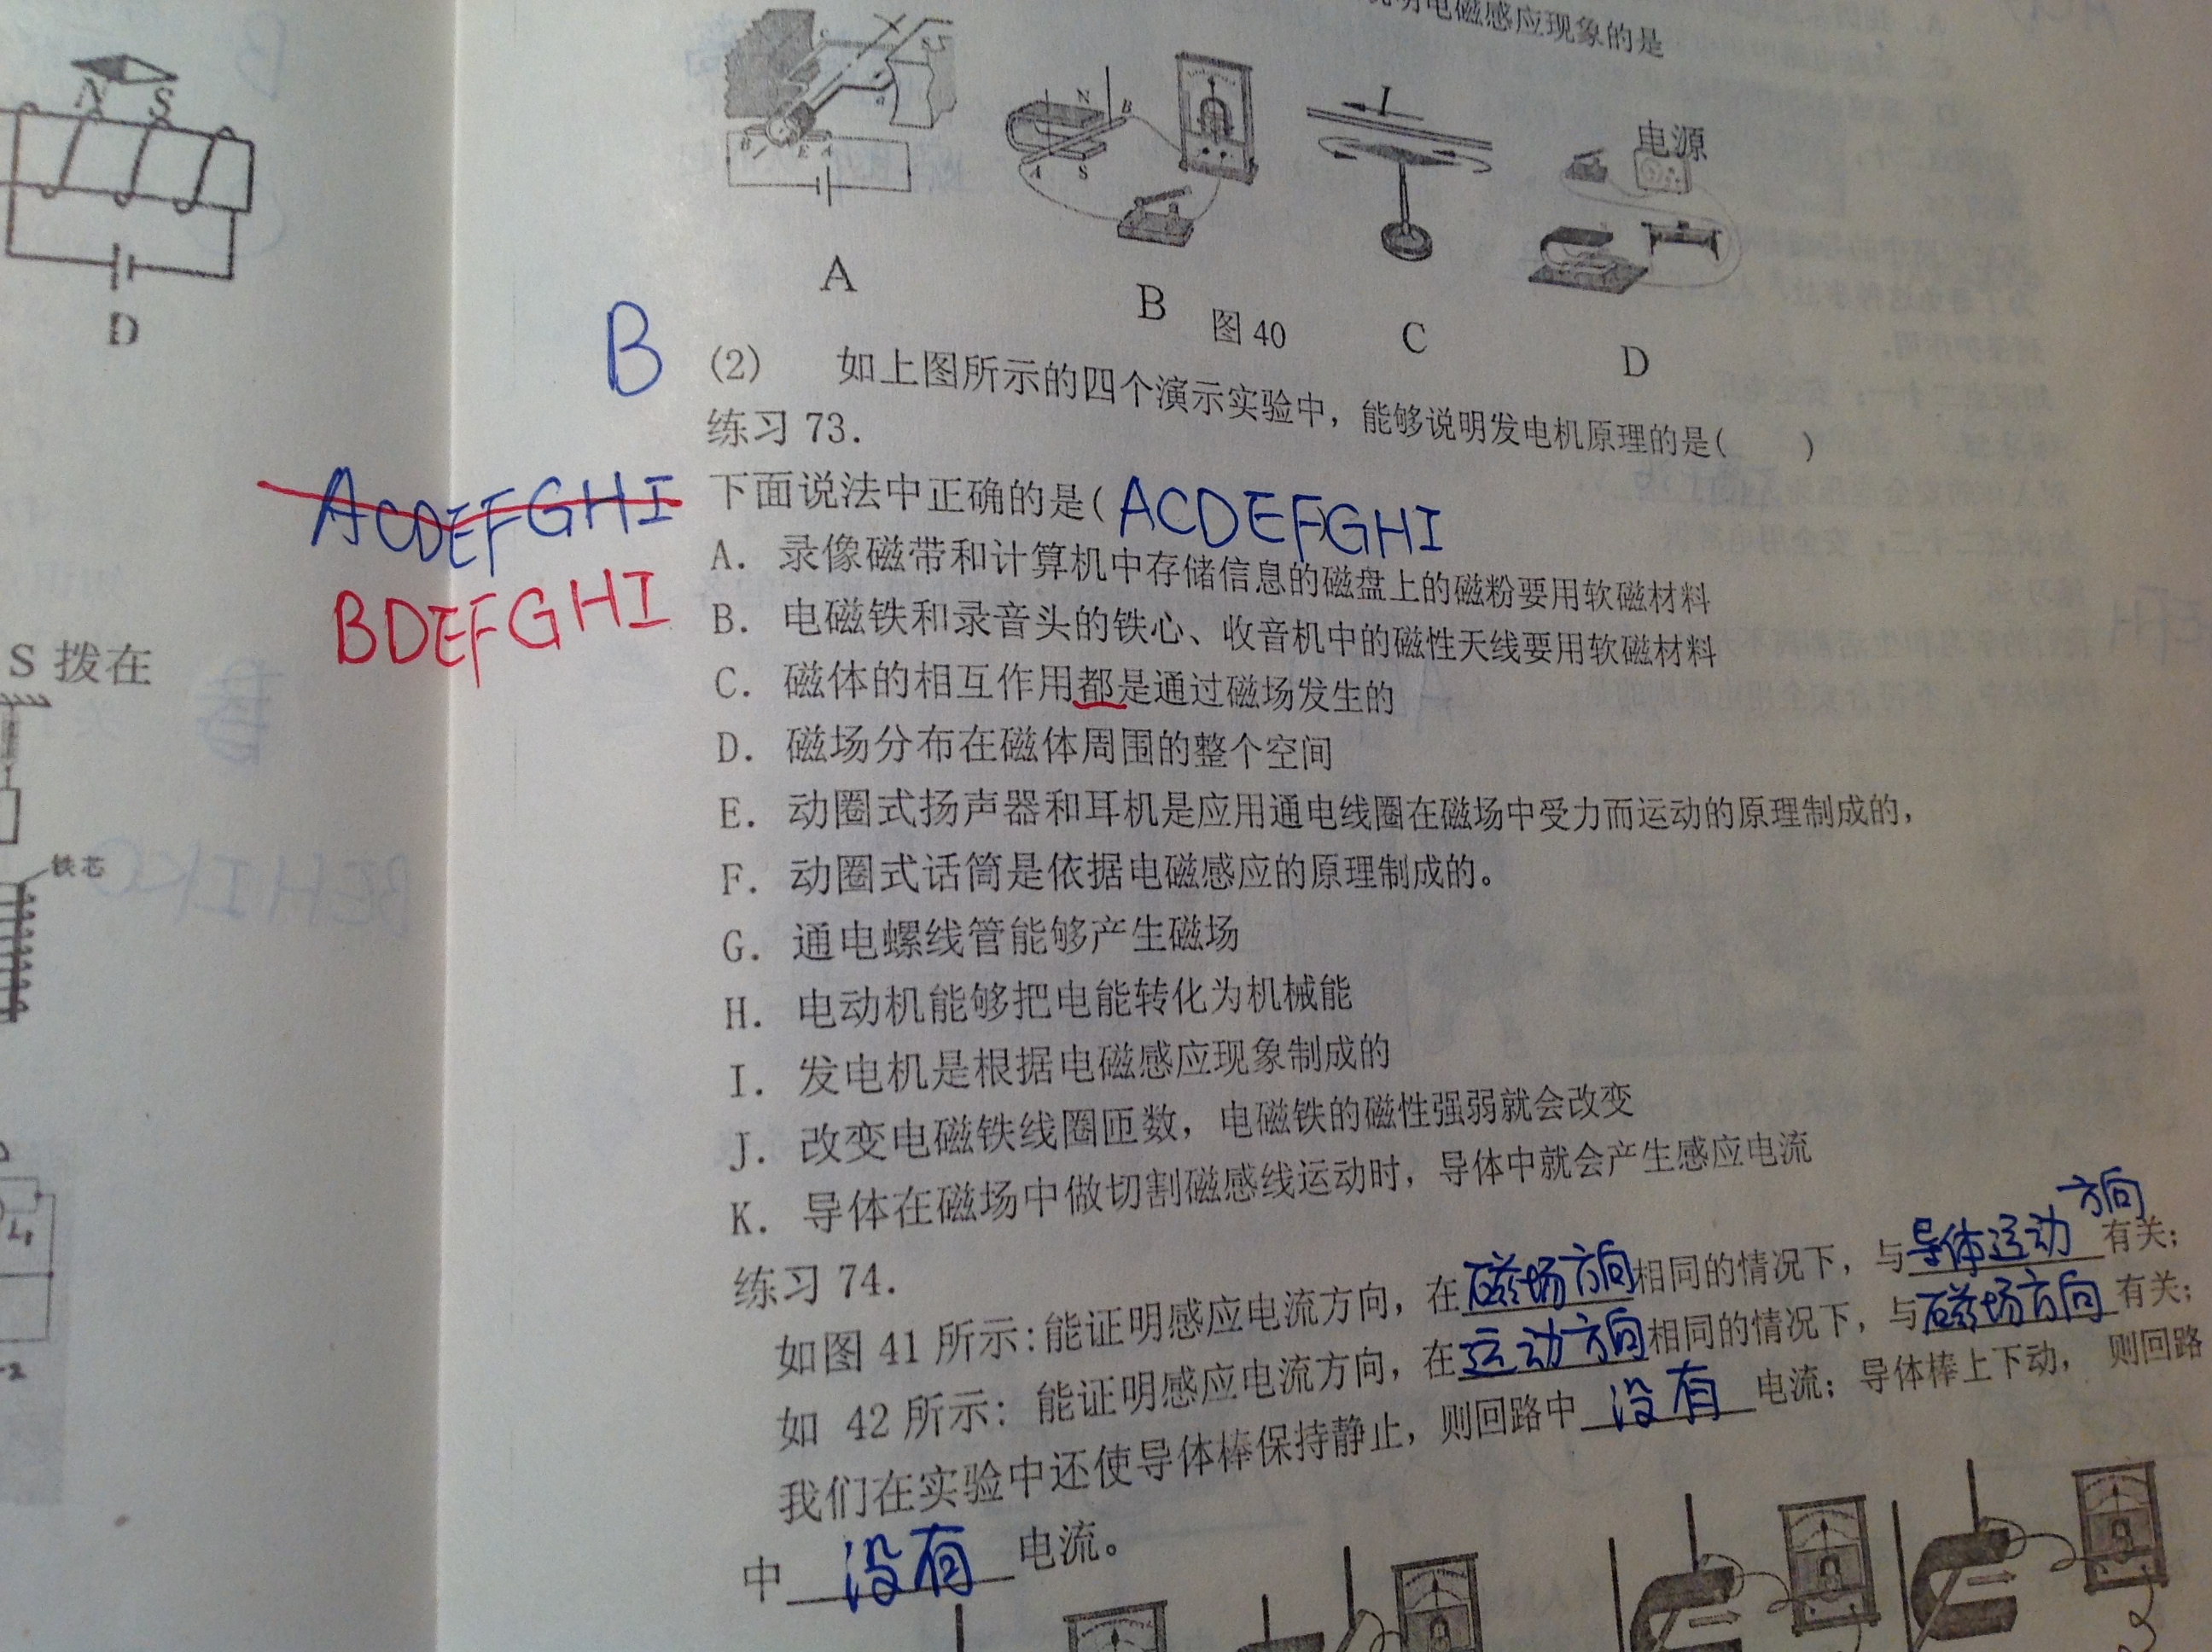 N S
D
S 拨在
铁芯
L₁
明电磁感应现象的是
N
B
A S
I
电源
B E A
A
B
C
D
图 40
B
(2) 如上图所示的四个演示实验中，能够说明发电机原理的是( )
练习 73.
下面说法中正确的是( ACDEFGHI
ACDEFGHI
BDEFGHI
A. 录像磁带和计算机中存储信息的磁盘上的磁粉要用软磁材料
B. 电磁铁和录音头的铁心、收音机中的磁性天线要用软磁材料
C. 磁体的相互作用都是通过磁场发生的
D. 磁场分布在磁体周围的整个空间
E. 动圈式扬声器和耳机是应用通电线圈在磁场中受力而运动的原理制成的，
F. 动圈式话筒是依据电磁感应的原理制成的。
G. 通电螺线管能够产生磁场
H. 电动机能够把电能转化为机械能
I. 发电机是根据电磁感应现象制成的
J. 改变电磁铁线圈匝数，电磁铁的磁性强弱就会改变
K. 导体在磁场中做切割磁感线运动时，导体中就会产生感应电流
练习 74.
如图 41 所示:能证明感应电流方向，在磁场方向相同的情况下，与导体运动方向有关;
如 42 所示: 能证明感应电流方向，在运动方向相同的情况下，与磁场方向有关;
我们在实验中还使导体棒保持静止，则回路中没有电流；导体棒上下动，则回路
中没有电流。